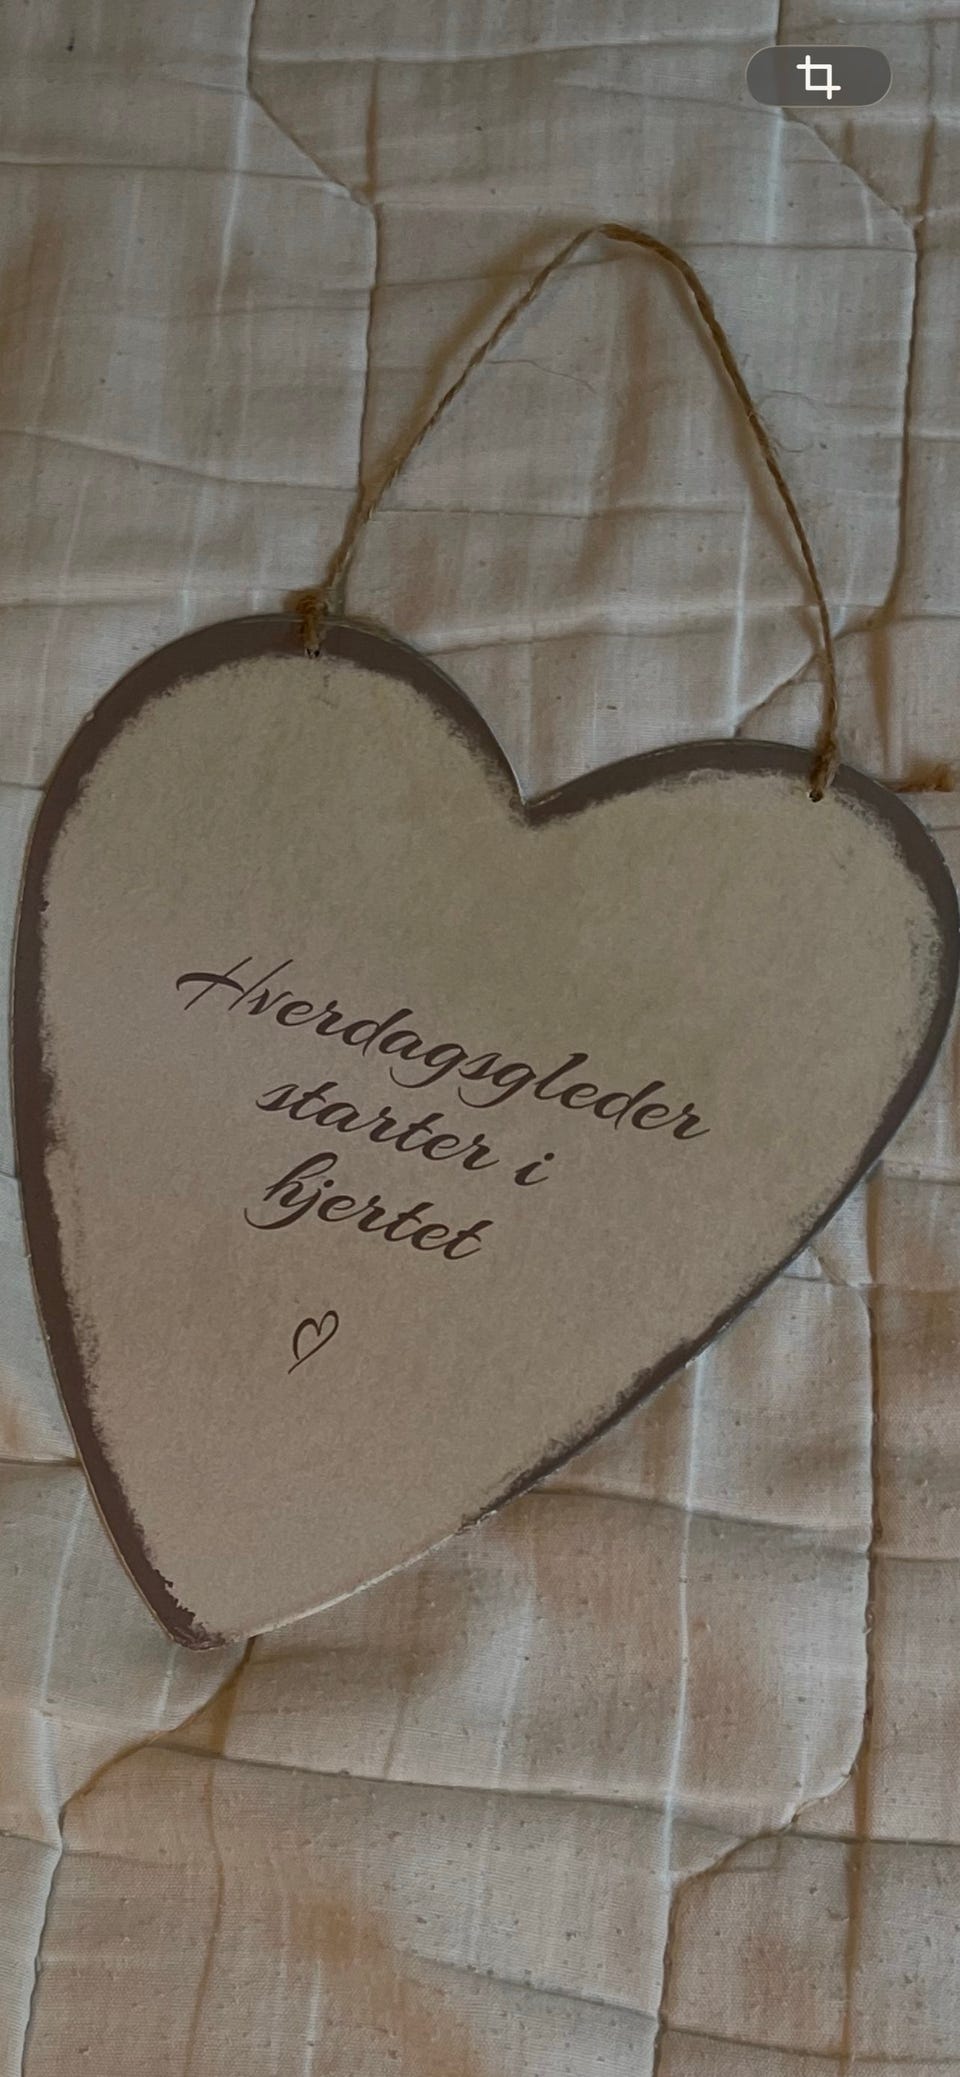 Hverdagsgleder
starter i
hjertet